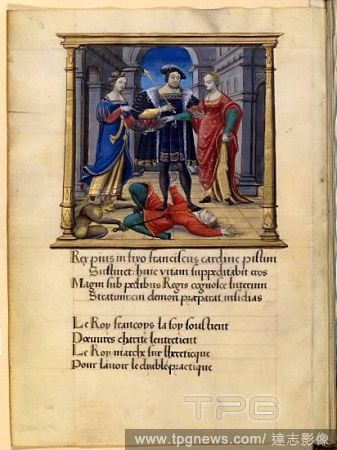 Rex pius in suo franciscus cardine pistim
Sustinet: huic vitam suppeditabit eros
Magni sub pedibus Regis cognosce luterum
Stratum cui demon præparat insidias
Le Roy francoys la foy soustient
D'œuvres charite lentretient
Le Roy marche sur lhereticque
Pour lauoir le diable practique
TPG
www.tpgnews.com/ 達志影像